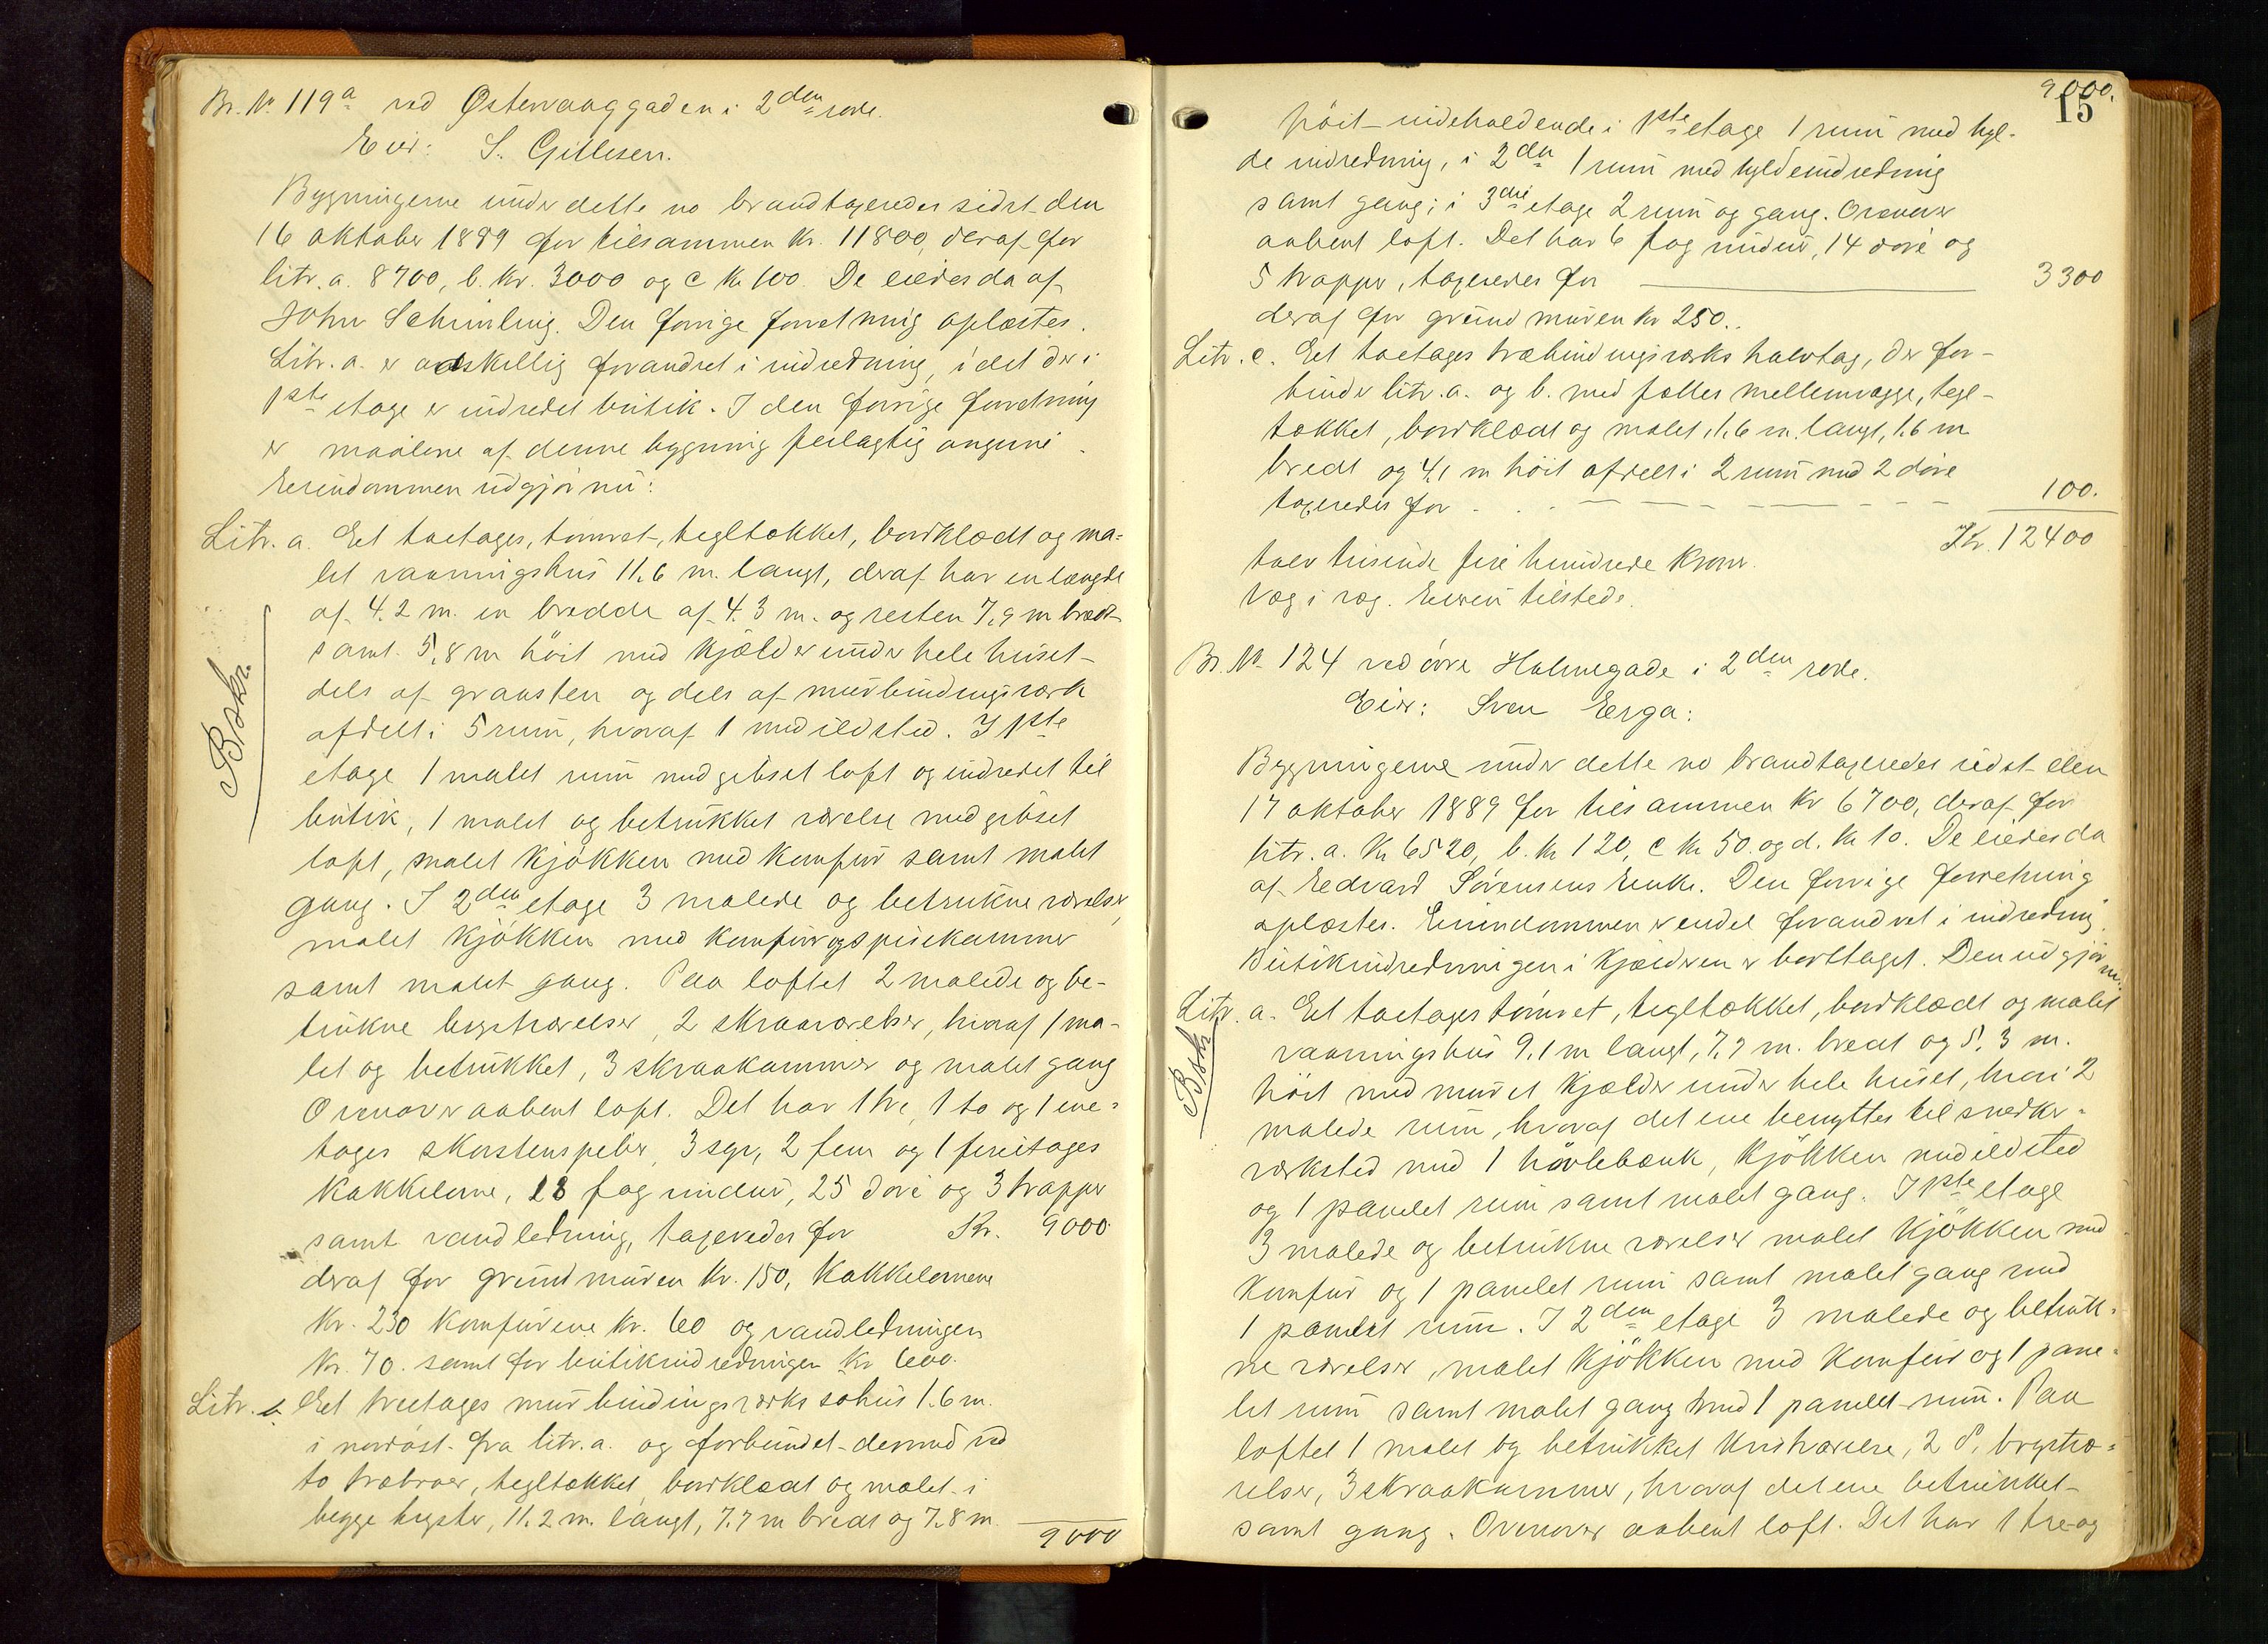 Br. No 119a ved Østervaaggaden i 2den rode.
Eier: S. Gillesen.
Bygningerne under dette no brandtaxeredes sidst den
16 oktober 1889 for tilsammen Kr. 11800, deraf for
litr. a. 8700, b. Kr. 3000 og c Kr 100. De eiedes da af
John Schimling. Den forrige forretning oplæstes.
Litr. a. er adskillig forandret i indredning, idet der i
1ste etage er indredet butik. I den forrige forretning
er maalene af denne bygning feilagtig angivne.
Eiendommen udgjør nu:
Litr. a. Eet toetages, tømret, tegltækket, bordklædt og ma-
let vaaningshus 11.6 m. langt, deraf har en længde
af 4.2 m. en bredde af 4.3 m. og resten 7.9 m bredt
samt 5.8 m höit med Kjælder under hele huset
dels af graasten og dels af murbindingsværk
afdelt i 5 rum, hvoraf 1 med ildsted. I 1ste
etage 1 malet rum med gibset loft og indredet til
butik, 1 malet og betrukket værelse med gibset
loft, malet Kjökken med Komfur samt malet
gang. I 2den etage 3 malede og betrukne værelser,
malet Kjökken med Komfur og spisekammer
samt malet gang. Paa loftet 2 malede og be-
trukne kvistværelser, 2 skraaværelser, hvoraf 1 ma-
let og betrukket, 3 skraakammer og malet gang
Ovenover aabent loft. Det har 1 tre, 1 to og 1 ene-
tages skorstenspiber, 3 sex, 2 fem og 1 fireetages
Kakkelovne, 28 fag vinduer, 25 döre og 3 trapper
samt vandledning, taxeredes for Kr. 9000
deraf for grundmuren Kr. 150, Kakkelovnene
Kr. 230 Komfurene Kr. 60 og vandledningen
Kr. 70. samt for butikindredningen Kr 600.
Litr. b. Eet treetages murbindingsværks söhus 1.6 m.
i nordöst fra litr. a. og forbundet dermed ved
to træbroer, tegltækket, bordklædt og malet i
begge gavle, 11.2 m. langt, 7.7 m bredt og 7.8 m.
9000
9000.
15
höit indeholdende i 1ste etage 1 rum med hyl-
de indredning, i 2den 1 rum med hyldeindredning
samt gang; i 3die etage 2 rum og gang. Ovenover
aabent loft. Det har 6 fag vinduer, 14 döre og
5 trapper, taxeredes for 3300
deraf for grundmuren Kr 250.
Litr. c. Eet toetages træbindingsværks halvtag, der for-
binder litr. a. og b. med fælles mellemvægge, tegl-
tækket, bordklædt og malet, 1.6 m. langt, 1.6 m
bredt og 4.1 m höit afdelt i 2 rum med 2 döre
taxeredes for 100.
Kr. 12400
tolv tusinde fire hundrede Kroner.
Væg i væg. Eieren tilstede.
Br. No 124 ved övre Holmegade i 2den rode.
Eier: Sven Eerga:
Bygningerne under dette no brandtaxeredes sidst den
17 oktober 1889 for tilsammen Kr 6700, deraf for
litr. a. Kr 6520, b. Kr 120, c Kr 50. og d. Kr 10. De eiedes da
af Eedvard Sörensens Enke. Den forrige forretning
oplæstes. Eiendommen er endel forandret i indredning.
Butikindredningen i Kjælderen er borttaget. Den udgjör
nu:
Litr. a. Eet toetages tömret, tegltækket, bordklædt og malet
vaaningshus 9.1 m langt, 7.7 m. bredt og 5.3 m.
höit med muret Kjælder under hele huset, hvori 2
malede rum, hvoraf det ene benyttes til snedker-
værksted med 1 hövlebænk, Kjökken med ildsted
og 1 panelet rum samt malet gang. I 1ste etage
3 malede og betrukne værelser malet Kjökken med
Komfur og 1 panelet rum samt malet gang med
1 panelet rum. I 2den etage 3 malede og betruk-
ne værelser, malet Kjökken med Komfur og 1 pane-
let rum samt malet gang med 1 panelet rum. Paa
loftet 1 malet og betrukket Kvistværelse, 2 d. brystvæ-
relser, 3 skraakammer, hvoraf det ene betrukket
samt gang. Ovenover aabent loft. Det har 1 tre og
Bskr.
Bskr.